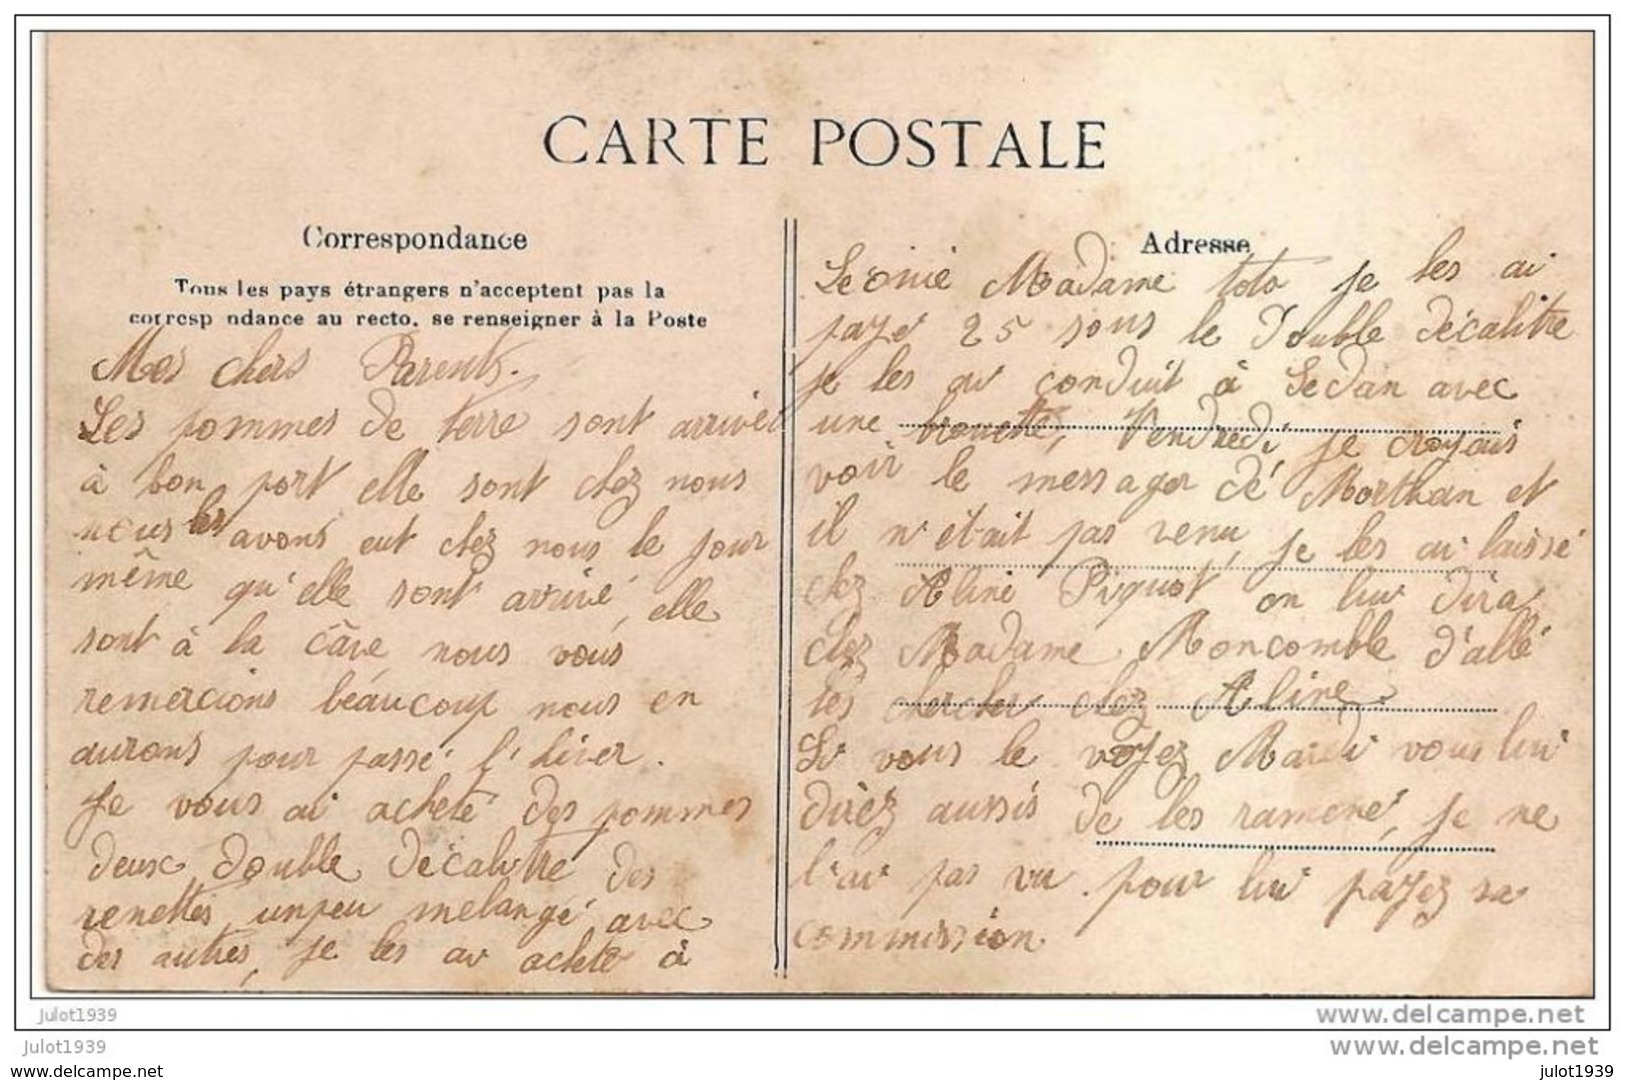 CARTE POSTALE
Correspondance
Tous les pays étrangers n'acceptent pas la
corresp ndance au recto. se renseigner à la Poste
Mes chers Parents.
Les pommes de terre sont arrivée
à bon port elle sont chez nous
nous les avons eut chez nous le jour
même qu'elle sont arrivé, elle
sont à la câve nous vous
remercions béaucoup nous en
aurons pour passé l'hiver.
Je vous ai acheté des pommes
deux double décalitre des
renettes unpeu melangé avec
des autres, je les ai acheté à
Adresse
Léonie Madame toto je les ai
payé 25 sous le Double décalitre
je les ai conduit à Sedan avec
une brouette, Vendredi je croyais
voir le messager dé Morthan et
il n'était pas venu, je les ai laissé
chez Aline Piquot on lui dira
chez Madame Moncomble d'allé
les chercher chez Aline.
Si vous le voyez Mardi vous lui
direz aussis de les ramené, je ne
l'ai pas vu pour lui payez sa
commission
julot1939
www.delcampe.net
julot1939
www.delcampe.net
julot1939
julot1939